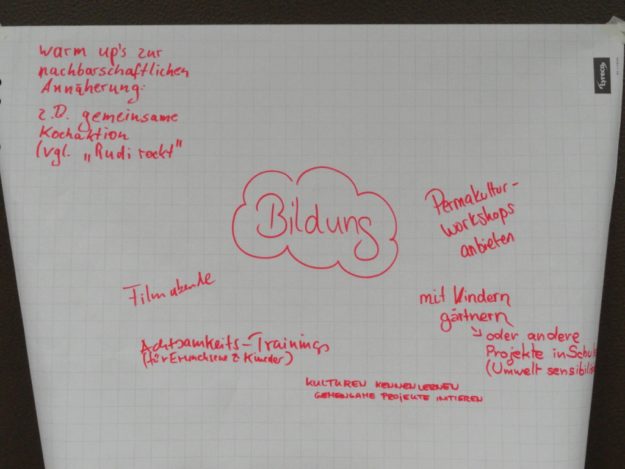 warm up's zur
nachbarschaftlichen
Annäherung:
z.B. gemeinsame
Kochaktion
(vgl. „Rudi rockt"
Bildung
Permakultur-
workshops
anbieten
Filmabende
mit Kindern
gärtnern
↳ oder andere
Projekte in Schul
(Umwelt sensibilis
Achtsamkeits-Trainings
(für Erwachsene & Kinder)
KULTUREN KENNENLERNEN
GEMEINSAME PROJEKTE INITIEREN
lyreco